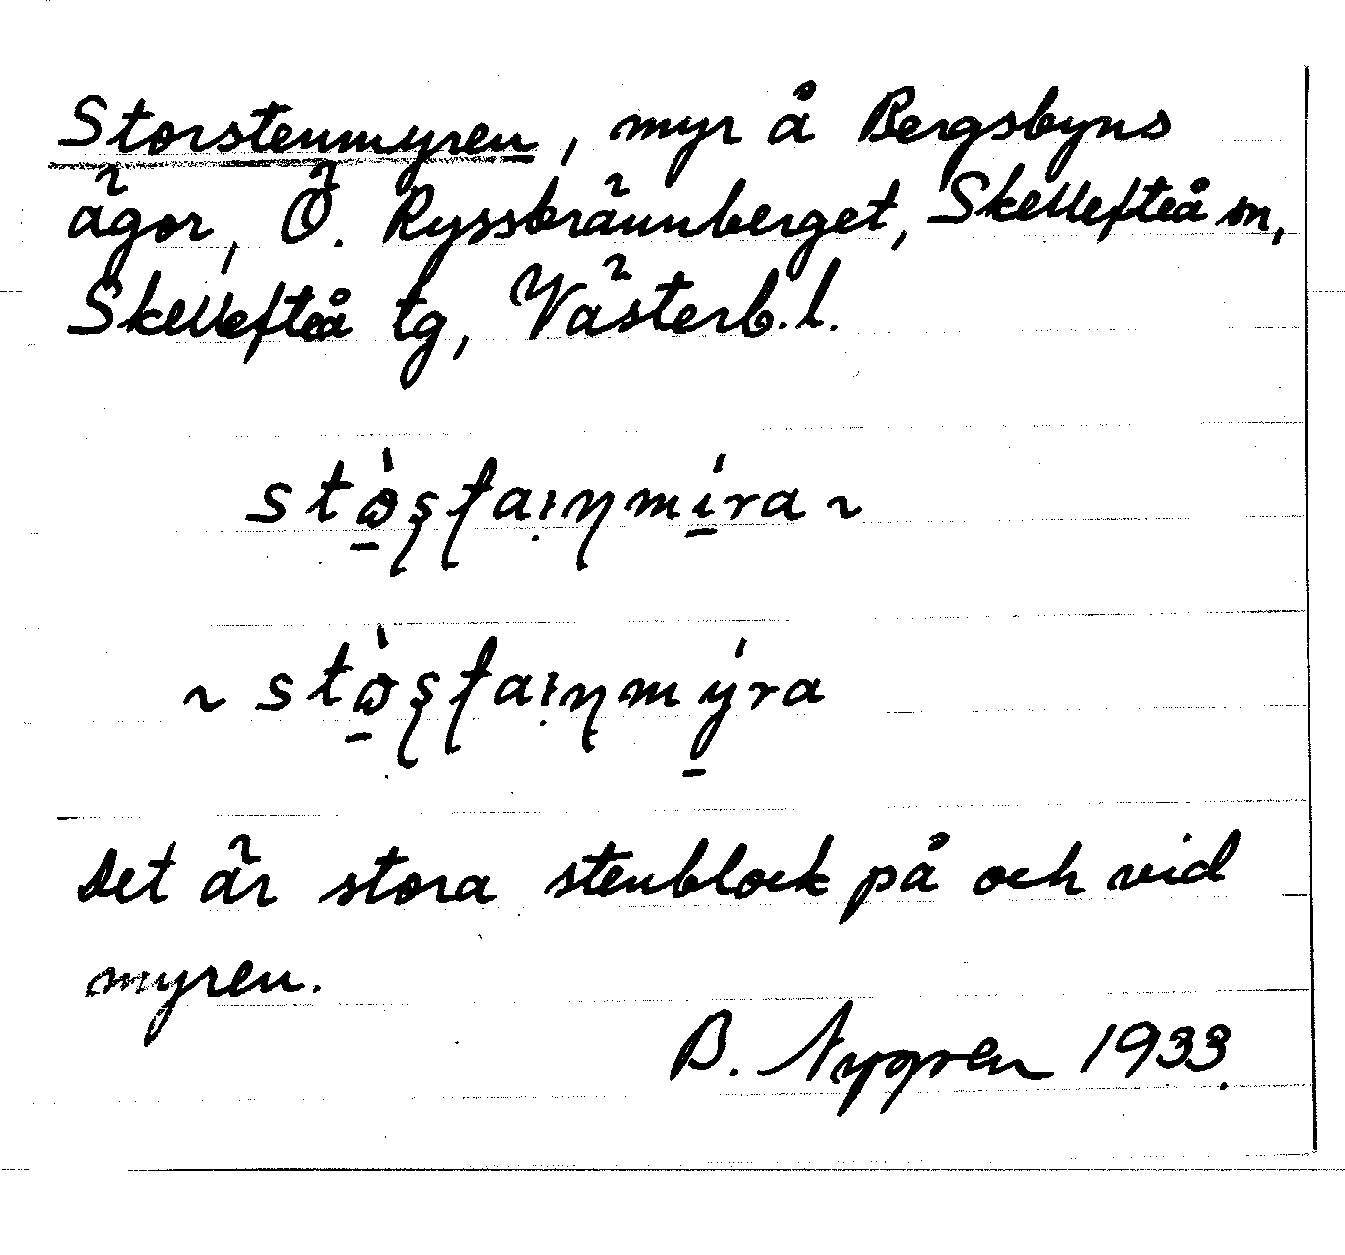 Storstenmyren, myr å Bergsbyns
ägor, Ö. Ryssbrännberget, Skellefteå sn,
Skellefteå tg, Västerb. l.
Det är stora stenblock på och vid
myren.
B. Nygren 1933.